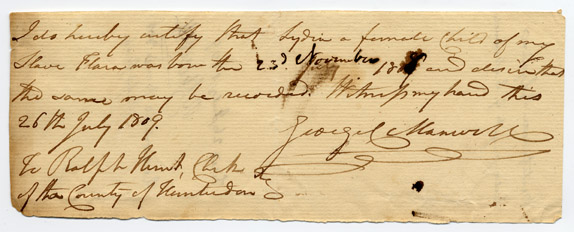 I do hereby certify that Lydia a female Child of my
Slave Flora was born the 23d November and desire that
the same may be recorded. Witness my hand this
26th July 1809.
George C Maxwell
To Ralph Hunt, Clerk
of the County of Hunterdon